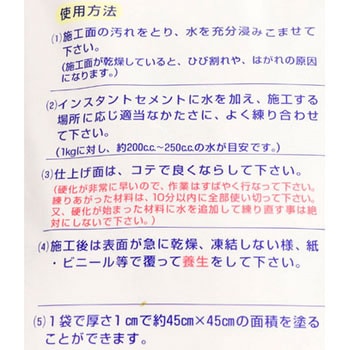 使用方法
(1)施工面の汚れをとり、水を充分浸みこませて
下さい。
(施工面が乾燥していると、ひび割れや、はがれの原因
になります。)
(2)インスタントセメントに水を加え、施工する
場所に応じ適当なかたさに、よく練り合わせ
て下さい。
(1kgに対し、約200c.c.~250c.c.の水が目安です。)
(3)仕上げ面は、コテで良くならして下さい。
(硬化が非常に早いので、作業はすばやく行なって下さい。
練りあがった材料は、10分以内に全部使い切って下さい。
又、硬化が始まった材料に水を追加して練り直す事は絶
対にしないで下さい。)
(4)施工後は表面が急に乾燥、凍結しない様、紙
・ビニール等で覆って養生をして下さい。
(5)1袋で厚さ1cmで約45cm×45cmの面積を塗る
ことができます。